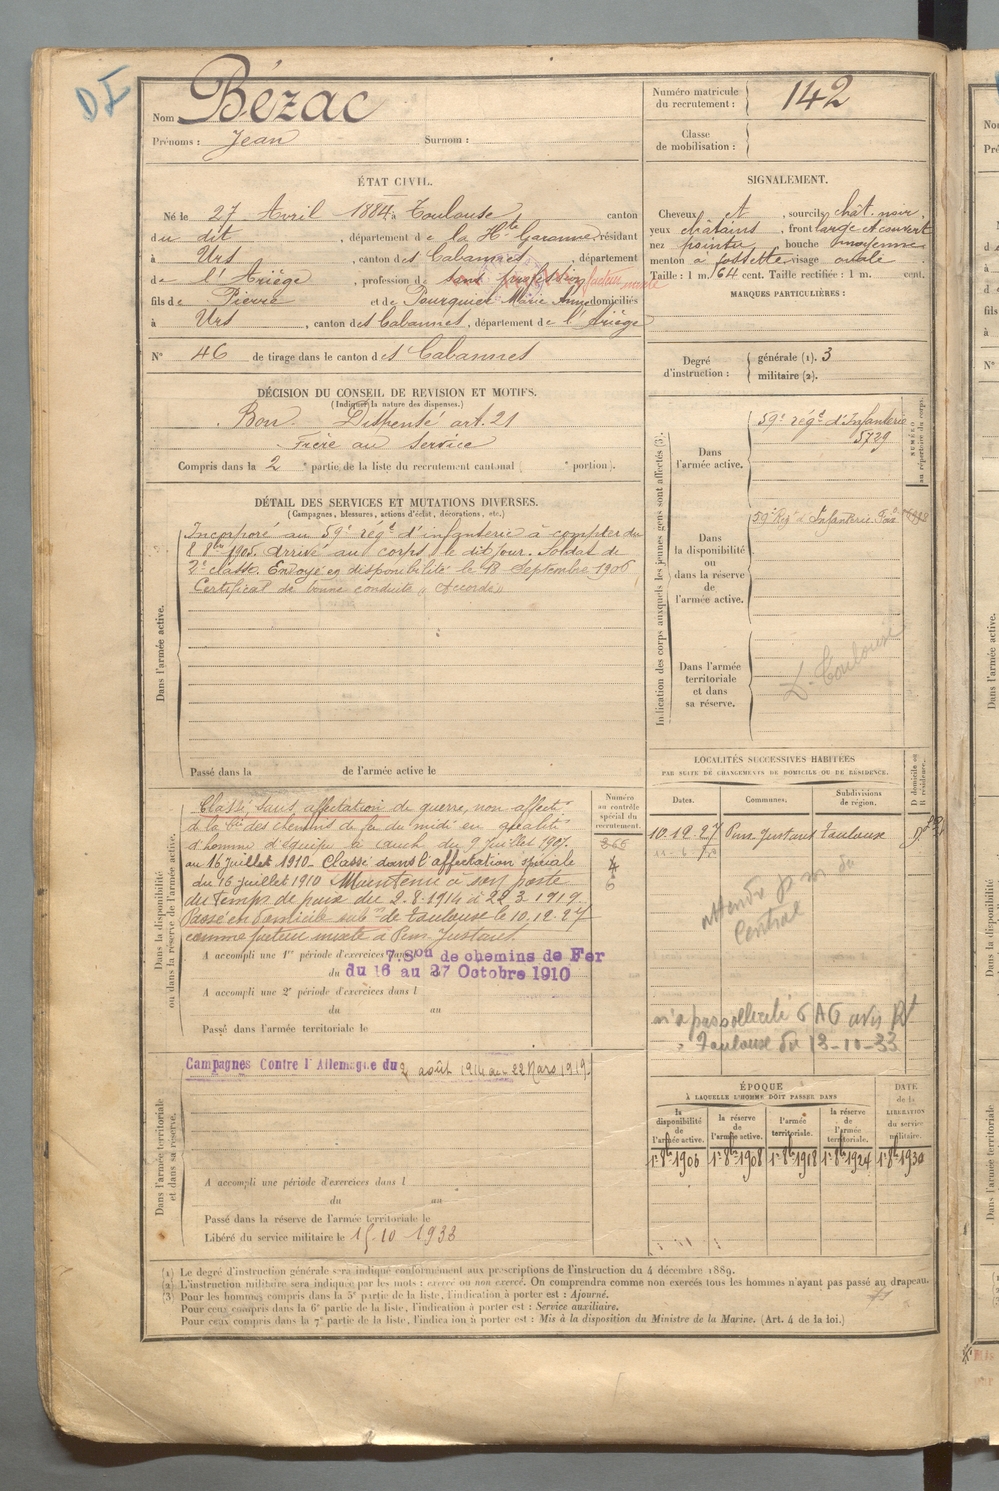 DI
Nom Bézac
Prénoms : Jean Surnom :
Numéro matricule du recrutement : 142
Classe de mobilisation :
ÉTAT CIVIL.
Né le 27 Avril 1884 à Toulouse canton
du dit, département de la Hte Garonne, résidant
à Urs, canton des Cabannes, département
de l'Ariège, profession de sans profession facteur mixte
fils de Pierre et de Pourquier Marie Anne domiciliés
à Urs, canton des Cabannes, département de l'Ariège
N° 46 de tirage dans le canton des Cabannes
SIGNALEMENT.
Cheveux et, sourcils chât. noir,
yeux châtains, front large et couvert
nez pointu, bouche moyenne
menton à fossette visage ovale
Taille : 1 m. 64 cent. Taille rectifiée : 1 m. cent.
MARQUES PARTICULIÈRES :
Degré d'instruction : générale (1). 3
militaire (2).
DÉCISION DU CONSEIL DE REVISION ET MOTIFS.
(Indiquer la nature des dispenses.)
Bon. Dispensé art. 21
Frère au Service
Compris dans la 2e partie de la liste du recrutement cantonal ( e portion).
DÉTAIL DES SERVICES ET MUTATIONS DIVERSES.
(Campagnes, blessures, actions d'éclat, décorations, etc.)
Dans l'armée active.
Incorporé au 59e régt d'infanterie à compter du
8 8bre 1905. Arrivé au corps le dit jour. Soldat de
2e classe. Envoyé en disponibilité le 18 Septembre 1906
Certificat de bonne conduite "Accordé"
Passé dans la de l'armée active le
Indication des corps auxquels les jeunes gens sont affectés (3).
NUMÉRO au répertoire du corps.
Dans l'armée active.
59e régt d'Infanterie
5729
Dans la disponibilité ou dans la réserve de l'armée active.
59e Régt d'Infanterie Foix
Dans l'armée territoriale et dans sa réserve.
D. Toulouse
Dans la disponibilité ou dans la réserve de l'armée active.
Classé, sans affectation de guerre, non affecté
de la Cie des chemins de fer du midi en qualité
d'homme d'équipe à Auch du 9 Juillet 1907.
au 16 juillet 1910 - Classé dans l'affectation spéciale
du 16 juillet 1910 Maintenu à son poste
du temps de paix du 2.8.1914 à 22.3.1919.
Passé en domicile subon de Toulouse le 10.12.27
comme facteur mixte à Pins Justaret.
Numéro au contrôle spécial du recrutement.
A accompli une 1re période d'exercices dans
7e Son de chemins de Fer
du 16 au 27 Octobre 1910
A accompli une 2e période d'exercices dans l
du au
Passé dans l'armée territoriale le
LOCALITÉS SUCCESSIVES HABITÉES
PAR SUITE DE CHANGEMENTS DE DOMICILE OU DE RÉSIDENCE.
Dates. Communes. Subdivisions de région. D domicile ou R résidence.
10.12.27 Pins Justaret Toulouse D
Central
n'a pas sollicité avis
Toulouse du 18-10-33
Dans l'armée territoriale et dans sa réserve.
Campagnes Contre l'Allemagne du 2 août 1914 au 22 Mars 1919.
A accompli une période d'exercices dans l
du au
Passé dans la réserve de l'armée territoriale le
Libéré du service militaire le 15.10 1933
ÉPOQUE
À LAQUELLE L'HOMME DOIT PASSER DANS
la disponibilité de l'armée active. la réserve de l'armée active. l'armée territoriale. la réserve de l'armée territoriale. DATE de la LIBÉRATION du service militaire.
1er 8bre 1906 1er 8bre 1908 1er 8bre 1918 1er 8bre 1924 1er 8bre 1930
(1) Le degré d'instruction générale sera indiqué conformément aux prescriptions de l'instruction du 4 décembre 1889.
(2) L'instruction militaire sera indiquée par les mots : exercé ou non exercé. On comprendra comme non exercés tous les hommes n'ayant pas passé au drapeau.
(3) Pour les hommes compris dans la 5e partie de la liste, l'indication à porter est : Ajourné.
Pour ceux compris dans la 6e partie de la liste, l'indication à porter est : Service auxiliaire.
Pour ceux compris dans la 7e partie de la liste, l'indication à porter est : Mis à la disposition du Ministre de la Marine. (Art. 4 de la loi.)